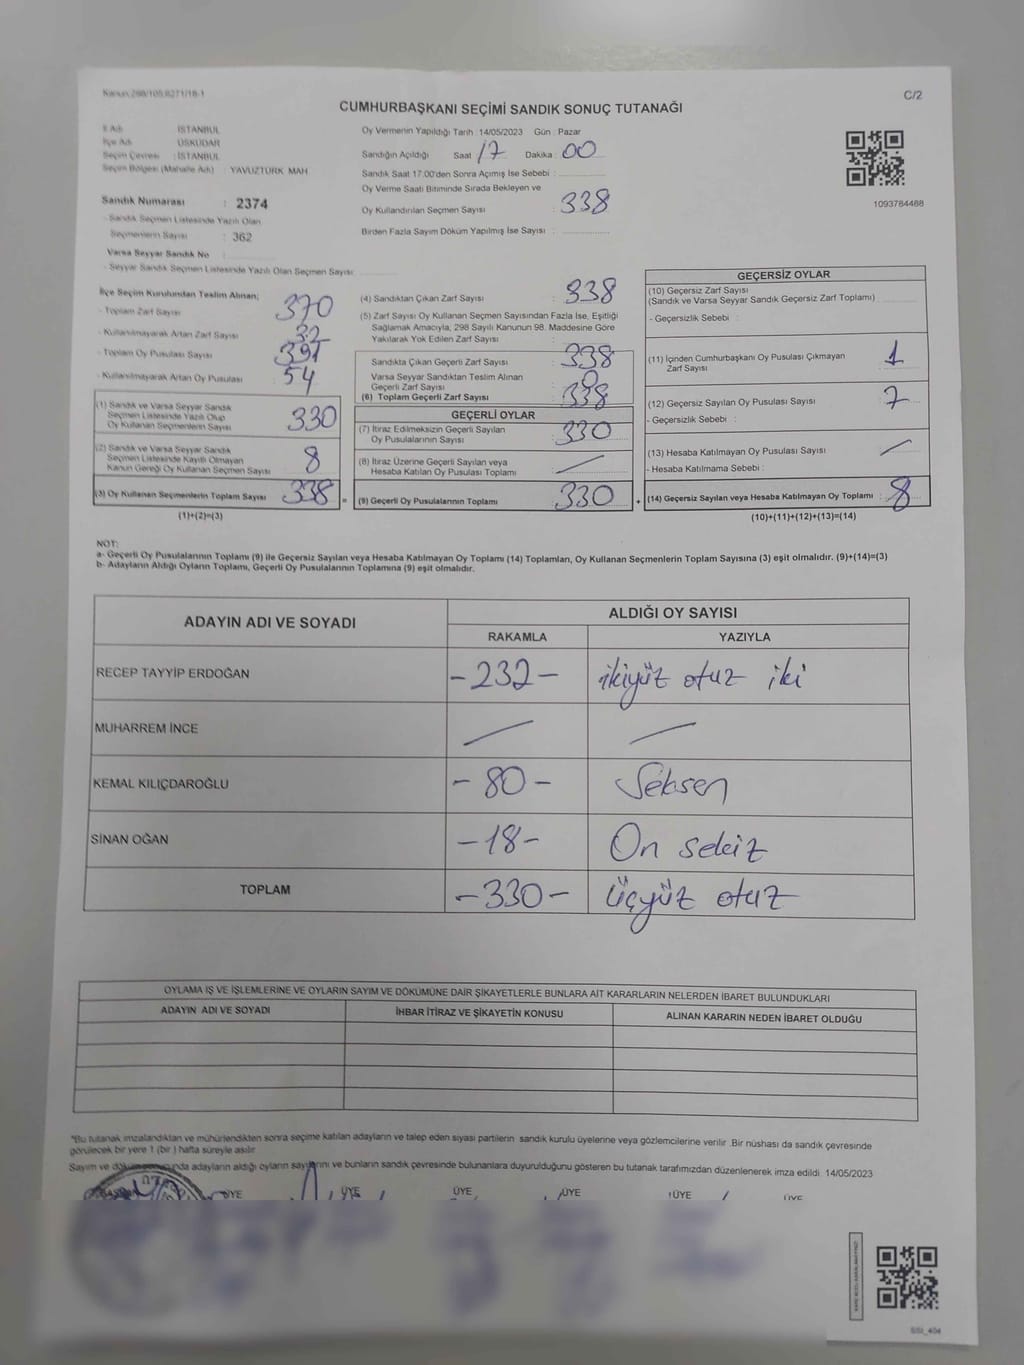 Kanun:298/105,6271/18-1
C/2
CUMHURBAŞKANI SEÇİMİ SANDIK SONUÇ TUTANAĞI
İl Adı : İSTANBUL
İlçe Adı : ÜSKÜDAR
Seçim Çevresi : İSTANBUL
Seçim Bölgesi (Mahalle Adı) : YAVUZTÜRK MAH
Sandık Numarası : 2374
- Sandık Seçmen Listesinde Yazılı Olan
Seçmenlerin Sayısı : 362
Varsa Seyyar Sandık No :
- Seyyar Sandık Seçmen Listesinde Yazılı Olan Seçmen Sayısı :
Oy Vermenin Yapıldığı Tarih : 14/05/2023 Gün : Pazar
Sandığın Açıldığı Saat : 17 Dakika : 00
Sandık Saat 17.00'den Sonra Açımış İse Sebebi :
Oy Verme Saati Bitiminde Sırada Bekleyen ve
Oy Kullandırılan Seçmen Sayısı : 338
Birden Fazla Sayım Döküm Yapılmış İse Sayısı :
1093784488
İlçe Seçim Kurulundan Teslim Alınan;
- Toplam Zarf Sayısı : 370
- Kullanılmayarak Artan Zarf Sayısı : 32
- Toplam Oy Pusulası Sayısı :
- Kullanılmayarak Artan Oy Pusulası : 54
(1) Sandık ve Varsa Seyyar Sandık
Seçmen Listesinde Yazılı Olup
Oy Kullanan Seçmenlerin Sayısı : 330
(2) Sandık ve Varsa Seyyar Sandık
Seçmen Listesinde Kayıtlı Olmayan
Kanun Gereği Oy Kullanan Seçmen Sayısı : 8
(3) Oy Kullanan Seçmenlerin Toplam Sayısı : 338 =
(1)+(2)=(3)
(4) Sandıktan Çıkan Zarf Sayısı : 338
(5) Zarf Sayısı Oy Kullanan Seçmen Sayısından Fazla İse, Eşitliği
Sağlamak Amacıyla, 298 Sayılı Kanunun 98. Maddesine Göre
Yakılarak Yok Edilen Zarf Sayısı :
Sandıkta Çıkan Geçerli Zarf Sayısı : 338
Varsa Seyyar Sandıktan Teslim Alınan
Geçerli Zarf Sayısı : 0
(6) Toplam Geçerli Zarf Sayısı : 338
GEÇERLİ OYLAR
(7) İtiraz Edilmeksizin Geçerli Sayılan
Oy Pusulalarının Sayısı : 330
(8) İtiraz Üzerine Geçerli Sayılan veya
Hesaba Katılan Oy Pusulası Toplamı : —
(9) Geçerli Oy Pusulalarının Toplamı : 330 +
GEÇERSİZ OYLAR
(10) Geçersiz Zarf Sayısı
(Sandık ve Varsa Seyyar Sandık Geçersiz Zarf Toplamı) :
- Geçersizlik Sebebi :
(11) İçinden Cumhurbaşkanı Oy Pusulası Çıkmayan
Zarf Sayısı : 1
(12) Geçersiz Sayılan Oy Pusulası Sayısı : 7
- Geçersizlik Sebebi :
(13) Hesaba Katılmayan Oy Pusulası Sayısı : —
- Hesaba Katılmama Sebebi :
(14) Geçersiz Sayılan veya Hesaba Katılmayan Oy Toplamı : 8
(10)+(11)+(12)+(13)=(14)
NOT:
a- Geçerli Oy Pusulalarının Toplamı (9) ile Geçersiz Sayılan veya Hesaba Katılmayan Oy Toplamı (14) Toplamları, Oy Kullanan Seçmenlerin Toplam Sayısına (3) eşit olmalıdır. (9)+(14)=(3)
b- Adayların Aldığı Oyların Toplamı, Geçerli Oy Pusulalarının Toplamına (9) eşit olmalıdır.
ADAYIN ADI VE SOYADI
ALDIĞI OY SAYISI
RAKAMLA YAZIYLA
RECEP TAYYİP ERDOĞAN -232- ikiyüz otuz iki
MUHARREM İNCE — —
KEMAL KILIÇDAROĞLU -80- Seksen
SİNAN OĞAN -18- On sekiz
TOPLAM -330- üçyüz otuz
OYLAMA İŞ VE İŞLEMLERİNE VE OYLARIN SAYIM VE DÖKÜMÜNE DAİR ŞİKAYETLERLE BUNLARA AİT KARARLARIN NELERDEN İBARET BULUNDUKLARI
ADAYIN ADI VE SOYADI İHBAR İTİRAZ VE ŞİKAYETİN KONUSU ALINAN KARARIN NEDEN İBARET OLDUĞU
*Bu tutanak imzalandıktan ve mühürlendikten sonra seçime katılan adayların ve talep eden siyasi partilerin sandık kurulu üyelerine veya gözlemcilerine verilir .Bir nüshası da sandık çevresinde
görülecek bir yere 1 (bir ) hafta süreyle asılır.
Sayım ve döküm sonucunda adayların aldığı oyların sayılarını ve bunların sandık çevresinde bulunanlara duyurulduğunu gösteren bu tutanak tarafımızdan düzenlenerek imza edildi. 14/05/2023
BAŞKAN ÜYE ÜYE ÜYE ÜYE ÜYE ÜYE
SSI_404